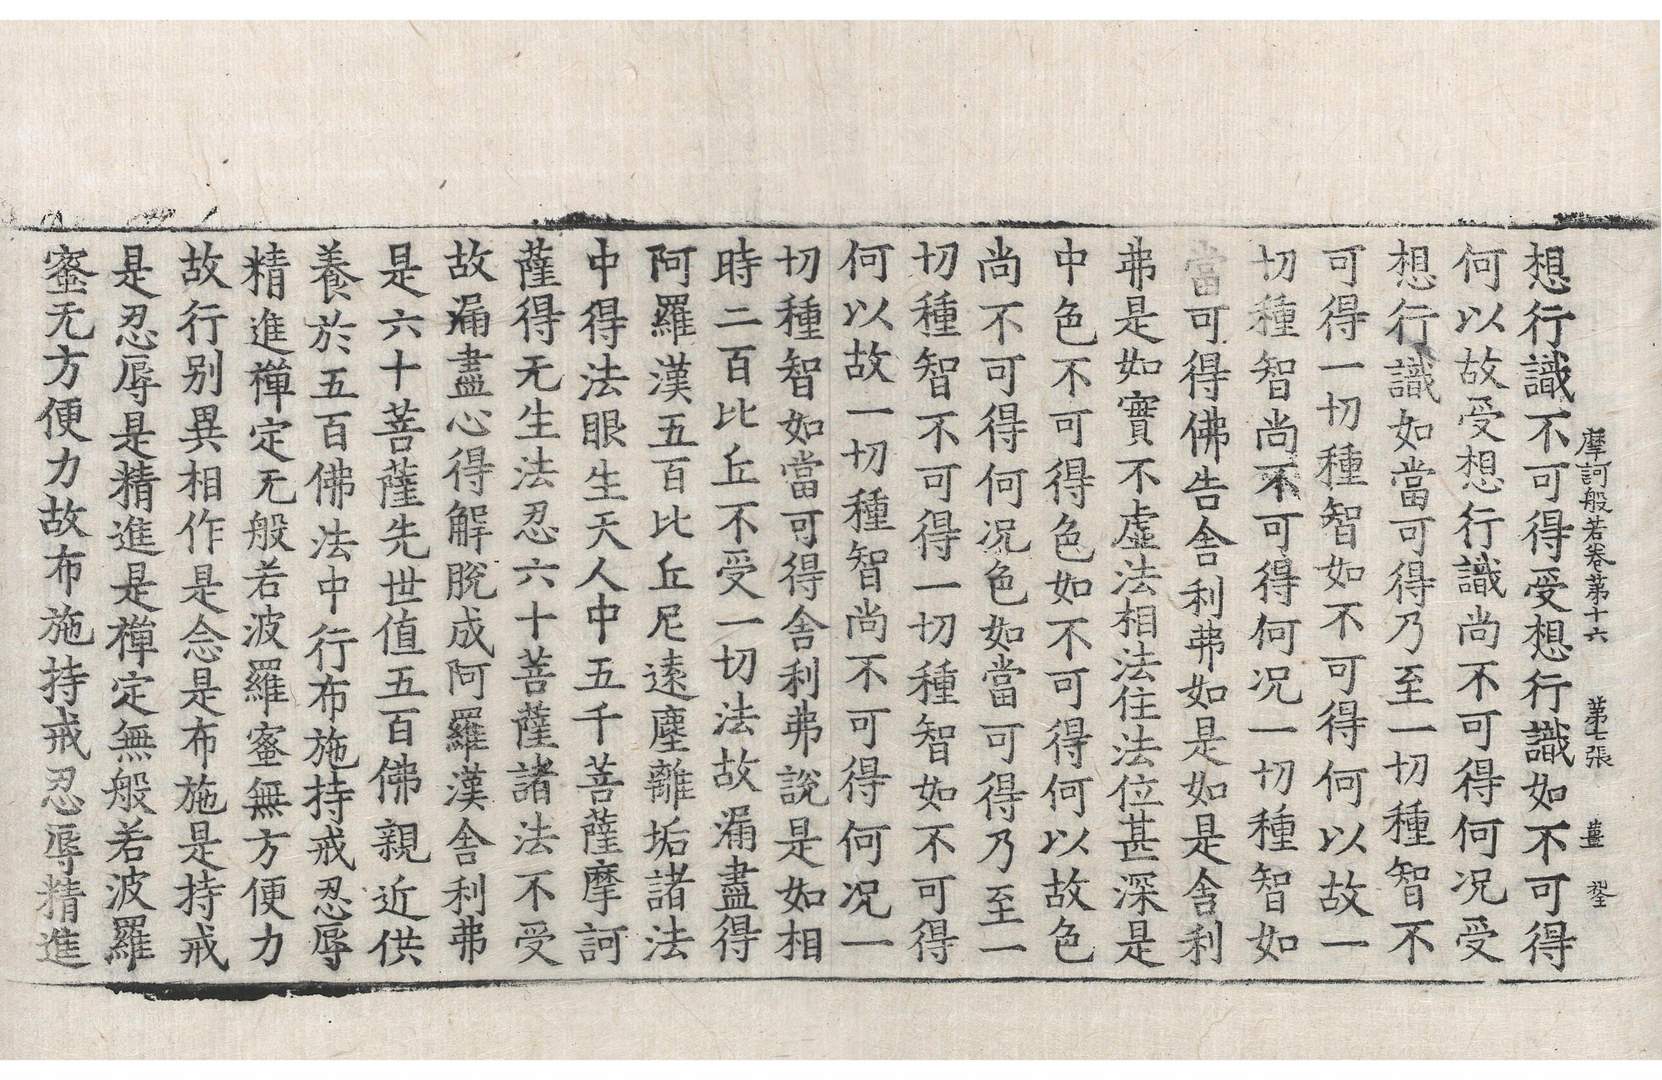 摩訶般若卷第十六 第七張 薑
想行識不可得受想行識如不可得
何以故受想行識尚不可得何况受
想行識如當可得乃至一切種智不
可得一切種智如不可得何以故一
切種智尚不可得何况一切種智如
當可得佛告舍利弗如是如是舍利
弗是如實不虛法相法住法位甚深是
中色不可得色如不可得何以故色
尚不可得何况色如當可得乃至一
切種智不可得一切種智如不可得
何以故一切種智尚不可得何况一
切種智如當可得舍利弗說是如相
時二百比丘不受一切法故漏盡得
阿羅漢五百比丘尼遠塵離垢諸法
中得法眼生天人中五千菩薩摩訶
薩得无生法忍六十菩薩諸法不受
故漏盡心得解脫成阿羅漢舍利弗
是六十菩薩先世值五百佛親近供
養於五百佛法中行布施持戒忍辱
精進禪定无般若波羅蜜無方便力
故行别異相作是念是布施是持戒
是忍辱是精進是禪定無般若波羅
蜜无方便力故布施持戒忍辱精進